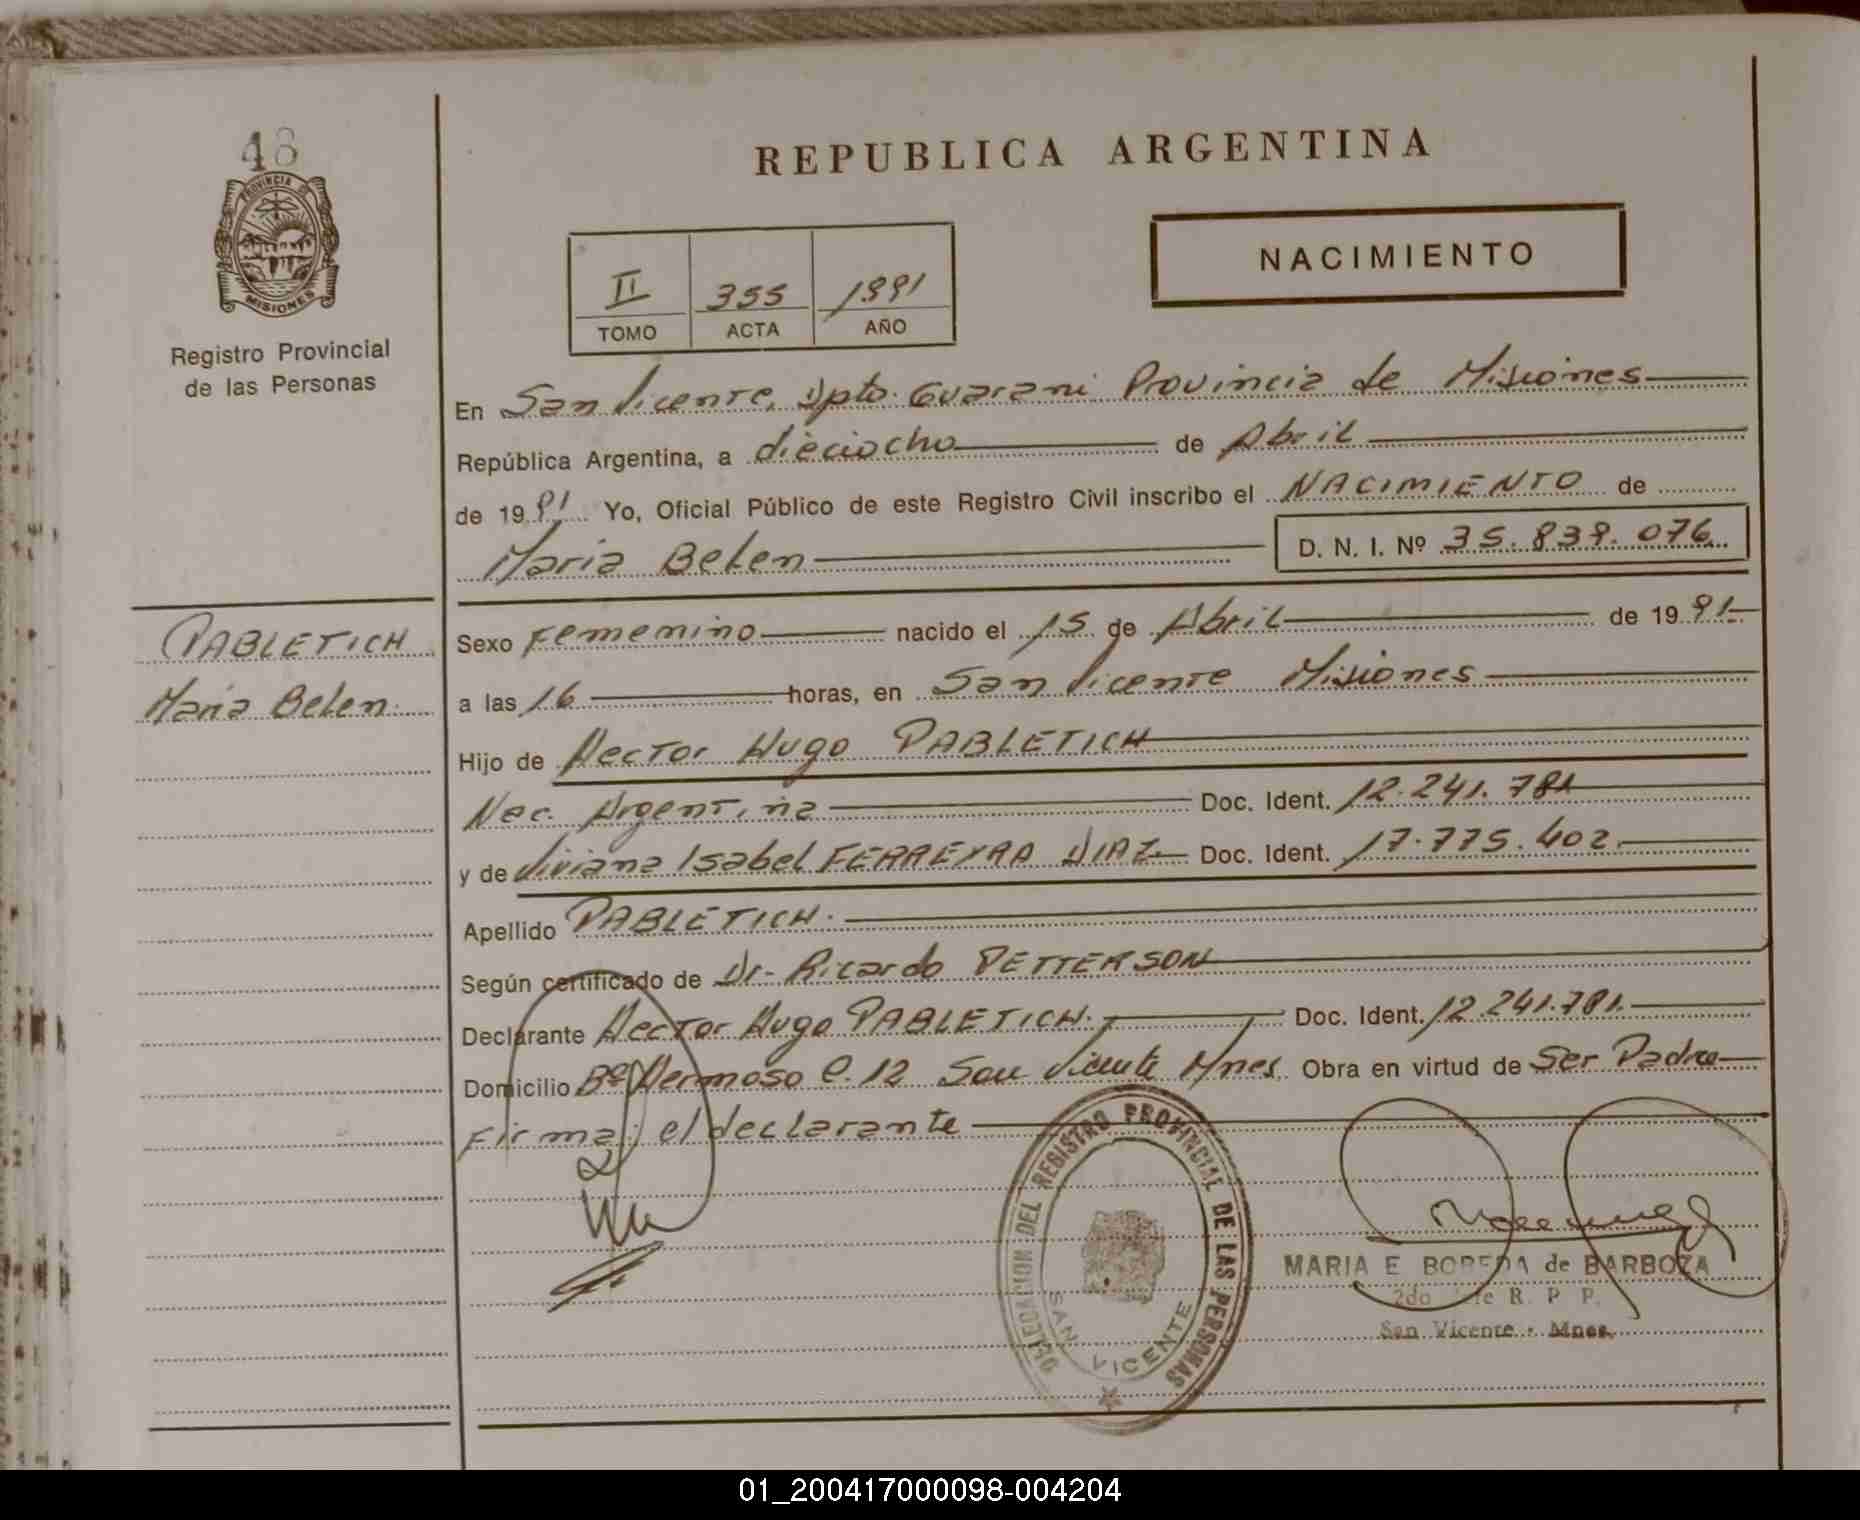 48
PROVINCIA DE
MISIONES
Registro Provincial
de las Personas
REPUBLICA ARGENTINA
NACIMIENTO
II 355 1991
TOMO ACTA AÑO
En San Vicente, Dpto. Guarani Provincia de Misiones
República Argentina, a dieciocho de Abril
de 1991 Yo, Oficial Público de este Registro Civil inscribo el NACIMIENTO de
Maria Belen D. N. I. Nº 35.839.076
PABLETICH
Maria Belen
Sexo Femenino nacido el 15 de Abril de 1991
a las 16 horas, en San Vicente Misiones
Hijo de Hector Hugo PABLETICH
Nac. Argentina Doc. Ident. 12.241.781
y de Viviana Isabel FERREYRA DIAZ Doc. Ident. 17.775.402
Apellido PABLETICH.
Según certificado de Dr. Ricardo PETTERSON
Declarante Hector Hugo PABLETICH. Doc. Ident. 12.241.781.
Domicilio Bº Hermoso C. 12 San Vicente Mnes. Obra en virtud de Ser Padre
Firma: el declarante
DELEGACION DEL REGISTRO PROVINCIAL DE LAS PERSONAS
SAN VICENTE
MARIA E. de BARBOZA
2do R. P. P.
San Vicente - Mnes.
01_200417000098-004204